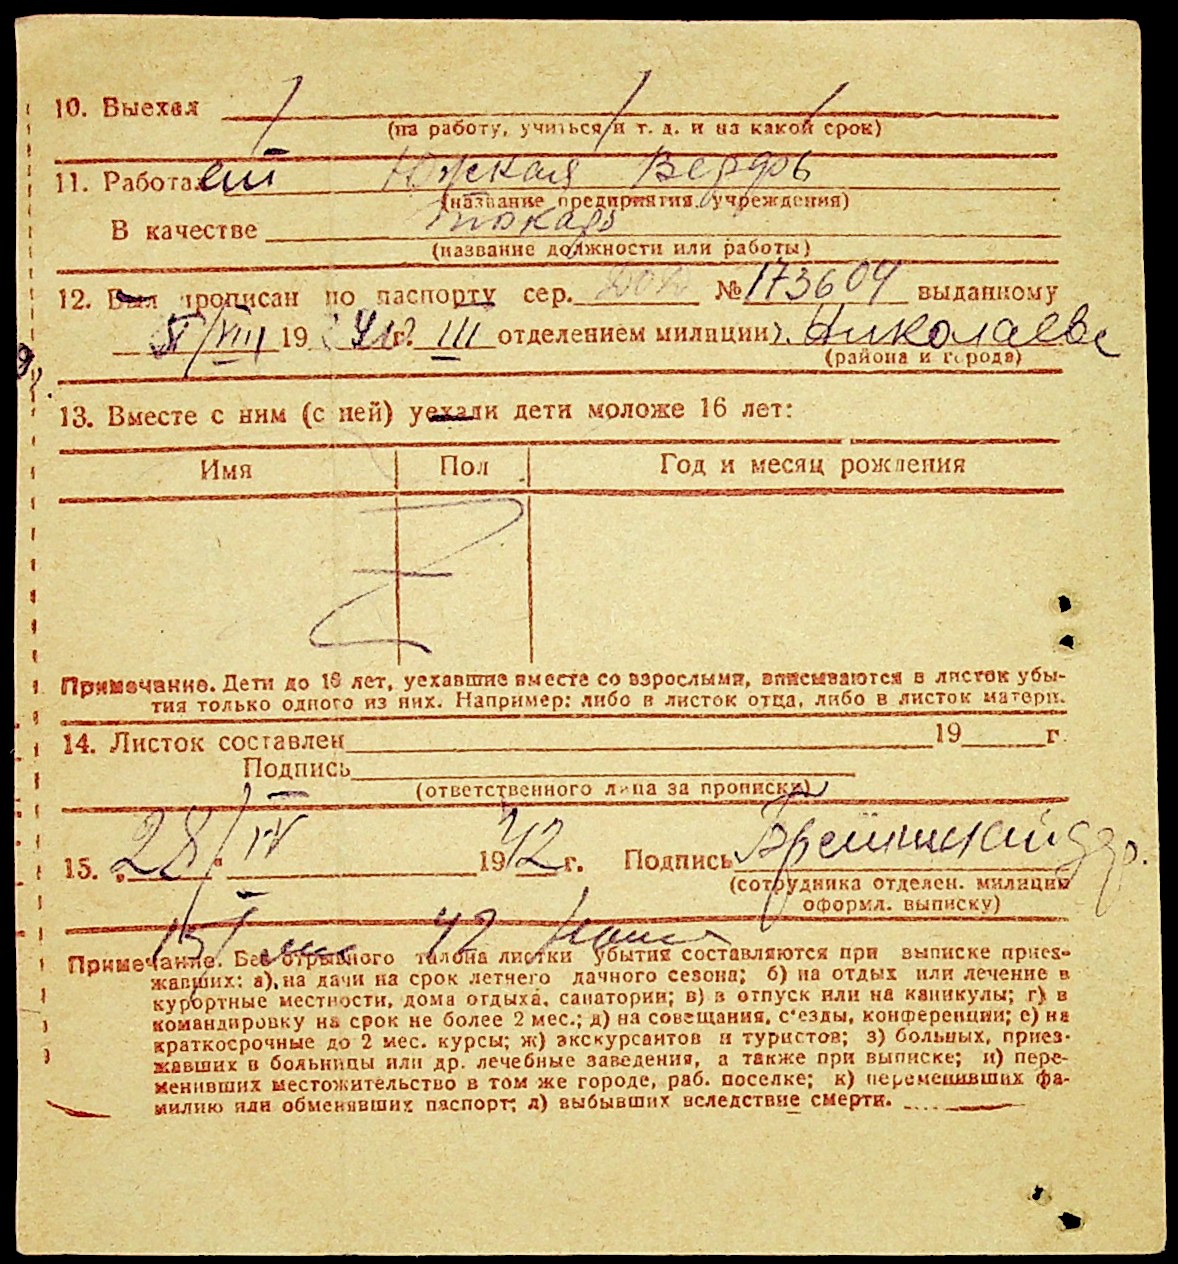 10. Выехал
(на работу, учиться и т. д. и на какой срок)
11. Работает Южная Верфь
(название предприятия, учреждения)
В качестве токарь
(название должности или работы)
12. Был прописан по паспорту сер. № 173604 выданному
VIII 19 40 г. III отделением милиции г. Николаев
(района и города)
13. Вместе с ним (с ней) уехали дети моложе 16 лет:
Имя Пол Год и месяц рождения
Z
Примечание. Дети до 16 лет, уехавшие вместе со взрослыми, вписываются в листок убы-
тия только одного из них. Например: либо в листок отца, либо в листок матери.
14. Листок составлен 19 г.
Подпись
(ответственного лица за прописку)
15. 28/IV 1942 г. Подпись
(сотрудника отделен. милиции
оформл. выписку)
15/V 42
Примечание. Без отрывного талона листки убытия составляются при выписке приез-
жавших: а) на дачи на срок летнего дачного сезона; б) на отдых или лечение в
курортные местности, дома отдыха, санатории; в) в отпуск или на каникулы; г) в
командировку на срок не более 2 мес.; д) на совещания, с'езды, конференции; е) на
краткосрочные до 2 мес. курсы; ж) экскурсантов и туристов; з) больных, приез-
жавших в больницы или др. лечебные заведения, а также при выписке; и) пере-
менивших местожительство в том же городе, раб. поселке; к) переменивших фа-
милию или обменявших паспорт; л) выбывших вследствие смерти.